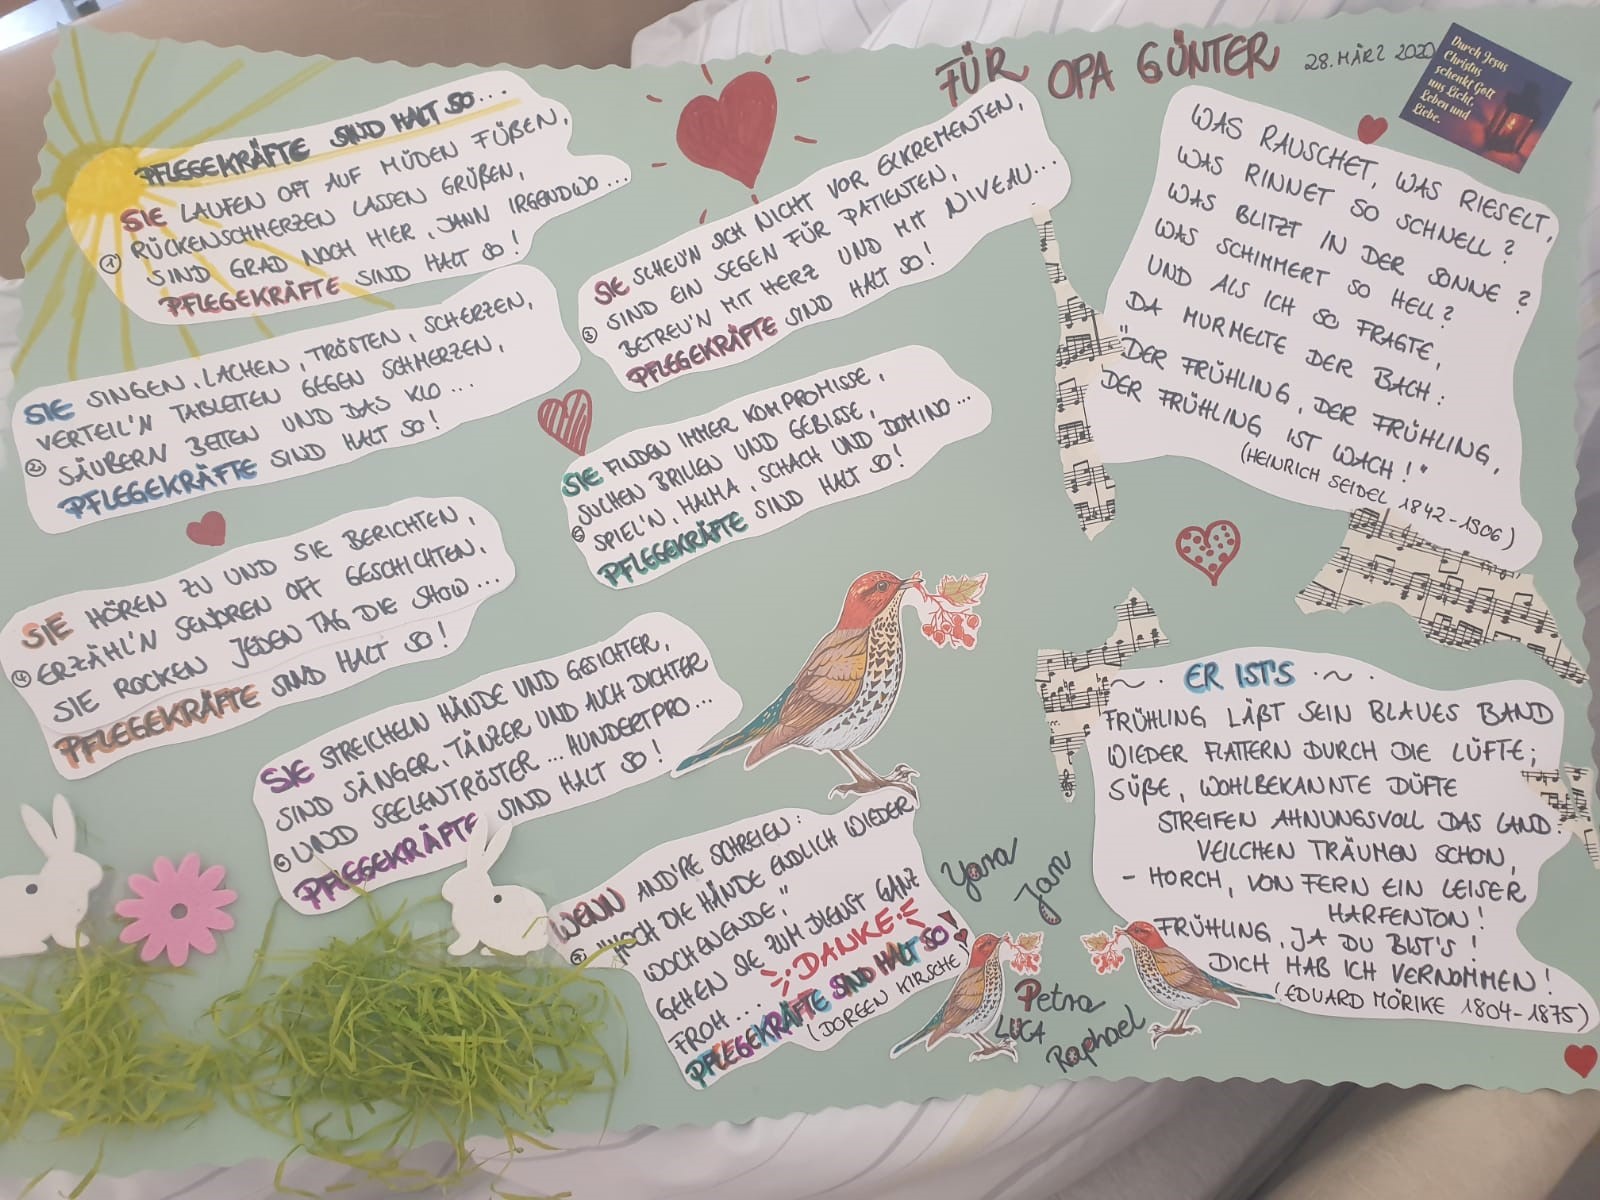 FÜR OPA GÜNTER
28. MÄRZ 2020
Durch Jesus
Christus
schenkt Gott
uns Licht,
Leben und
Liebe.
PFLEGEKRÄFTE SIND HALT SO...
SIE LAUFEN OFT AUF MÜDEN FÜßEN,
RÜCKENSCHMERZEN LASSEN GRÜßEN,
① SIND GRAD NOCH HIER, DANN IRGENDWO...
PFLEGEKRÄFTE SIND HALT SO!
SIE SINGEN, LACHEN, TRÖSTEN, SCHERZEN,
VERTEIL'N TABLETTEN GEGEN SCHMERZEN,
② SÄUBERN BETTEN UND DAS KLO...
PFLEGEKRÄFTE SIND HALT SO!
SIE SCHEU'N SICH NICHT VOR EXKREMENTEN,
SIND EIN SEGEN FÜR PATIENTEN,
③ BETREU'N MIT HERZ UND MIT NIVEAU...
PFLEGEKRÄFTE SIND HALT SO!
SIE HÖREN ZU UND SIE BERICHTEN,
④ ERZÄHL'N SENIOREN OFT GESCHICHTEN,
SIE ROCKEN JEDEN TAG DIE SHOW...
PFLEGEKRÄFTE SIND HALT SO!
SIE FINDEN IMMER KOMPROMISSE,
SUCHEN BRILLEN UND GEBISSE,
⑤ SPIEL'N, HALMA, SCHACH UND DOMINO...
PFLEGEKRÄFTE SIND HALT SO!
SIE STREICHELN HÄNDE UND GESICHTER,
SIND SÄNGER, TÄNZER UND AUCH DICHTER
⑥ UND SEELENTRÖSTER... HUNDERTPRO...
PFLEGEKRÄFTE SIND HALT SO!
WENN AND'RE SCHREIEN:
⑦ "HOCH DIE HÄNDE ENDLICH WIEDER
WOCHENENDE,"
GEHEN SIE ZUM DIENST GANZ
FROH... DANKE
PFLEGEKRÄFTE SIND HALT SO!
(DOREEN KIRSCHE)
WAS RAUSCHET, WAS RIESELT,
WAS RINNET SO SCHNELL?
WAS BLITZT IN DER SONNE?
WAS SCHIMMERT SO HELL?
UND ALS ICH SO FRAGTE,
DA MURMELTE DER BACH:
"DER FRÜHLING, DER FRÜHLING,
DER FRÜHLING IST WACH!"
(HEINRICH SEIDEL 1842-1906)
~ · ER IST'S · ~ ·
FRÜHLING LÄßT SEIN BLAUES BAND
WIEDER FLATTERN DURCH DIE LÜFTE;
SÜßE, WOHLBEKANNTE DÜFTE
STREIFEN AHNUNGSVOLL DAS LAND.
VEILCHEN TRÄUMEN SCHON,
- HORCH, VON FERN EIN LEISER
HARFENTON!
FRÜHLING, JA DU BIST'S!
DICH HAB ICH VERNOMMEN!
(EDUARD MÖRIKE 1804-1875)
Yara
Jan
Petra
LUCA
Raphael